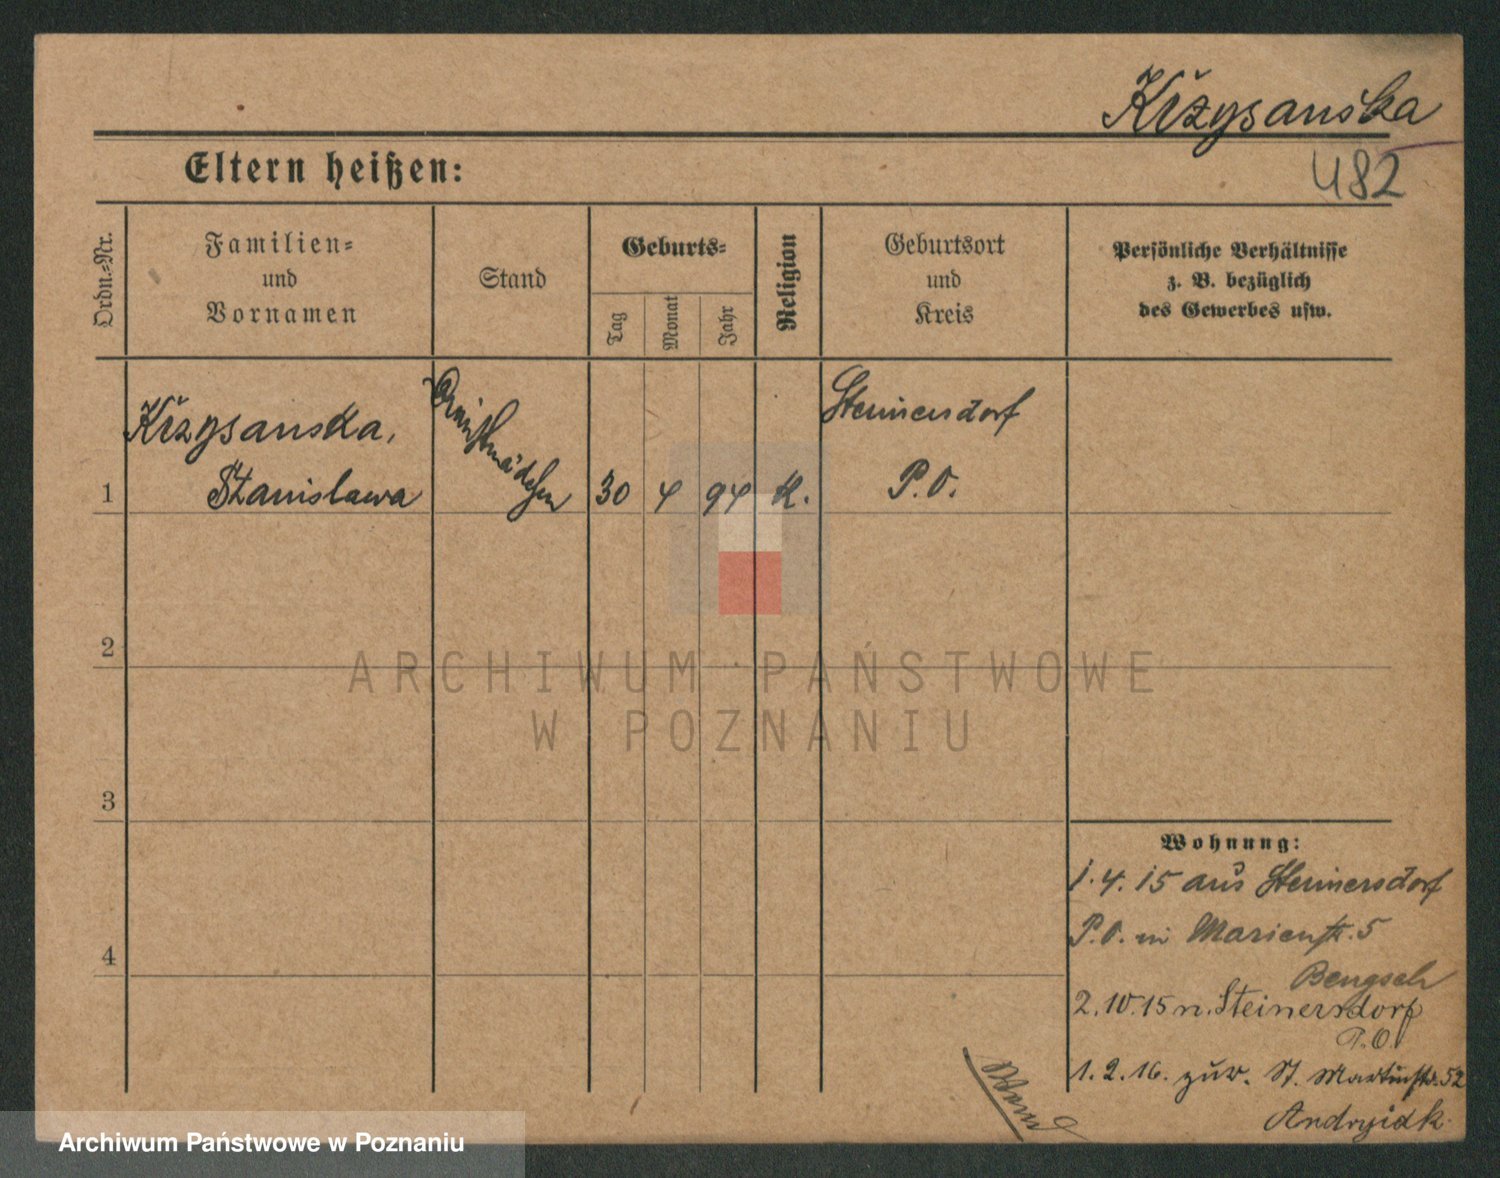 Krzysańska
482
Eltern heißen:
Ordn.-Nr.
Familien-
und
Vornamen
Stand
Geburts-
Tag
Monat
Jahr
Religion
Geburtsort
und
Kreis
Persönliche Verhältnisse
z. B. bezüglich
des Gewerbes usw.
1
Krzysanska,
Stanislawa
Dienstmädchen
30
4
94
K.
Steinersdorf
P.O.
2
3
4
Wohnung:
1.4.15 aus Steinersdorf
P.O. in Marienstr. 5
Bengsch
2.10.15 n. Steinersdorf
P.O.
1.2.16. zur. St. Martinstr. 52
ARCHIWUM PAŃSTWOWE
W POZNANIU
Archiwum Państwowe w Poznaniu